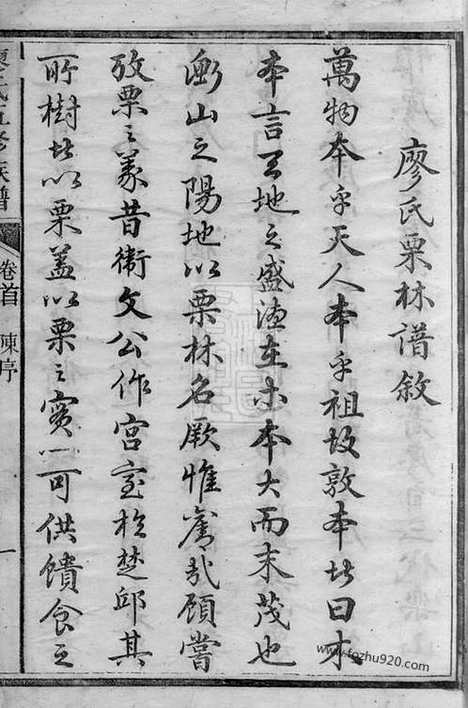 廖氏栗林譜敘
萬物本乎天人本乎祖故敦本者曰才
本言天地之盛德在木本大而末茂也
衡山之陽地以栗林名厥惟舊哉顧嘗
攷栗之義昔衛文公作宮室於楚邱其
所樹者以栗蓋以栗之實一可供饋食之
廖氏五修族譜
卷首 陳序
一
www.fozhu920.com